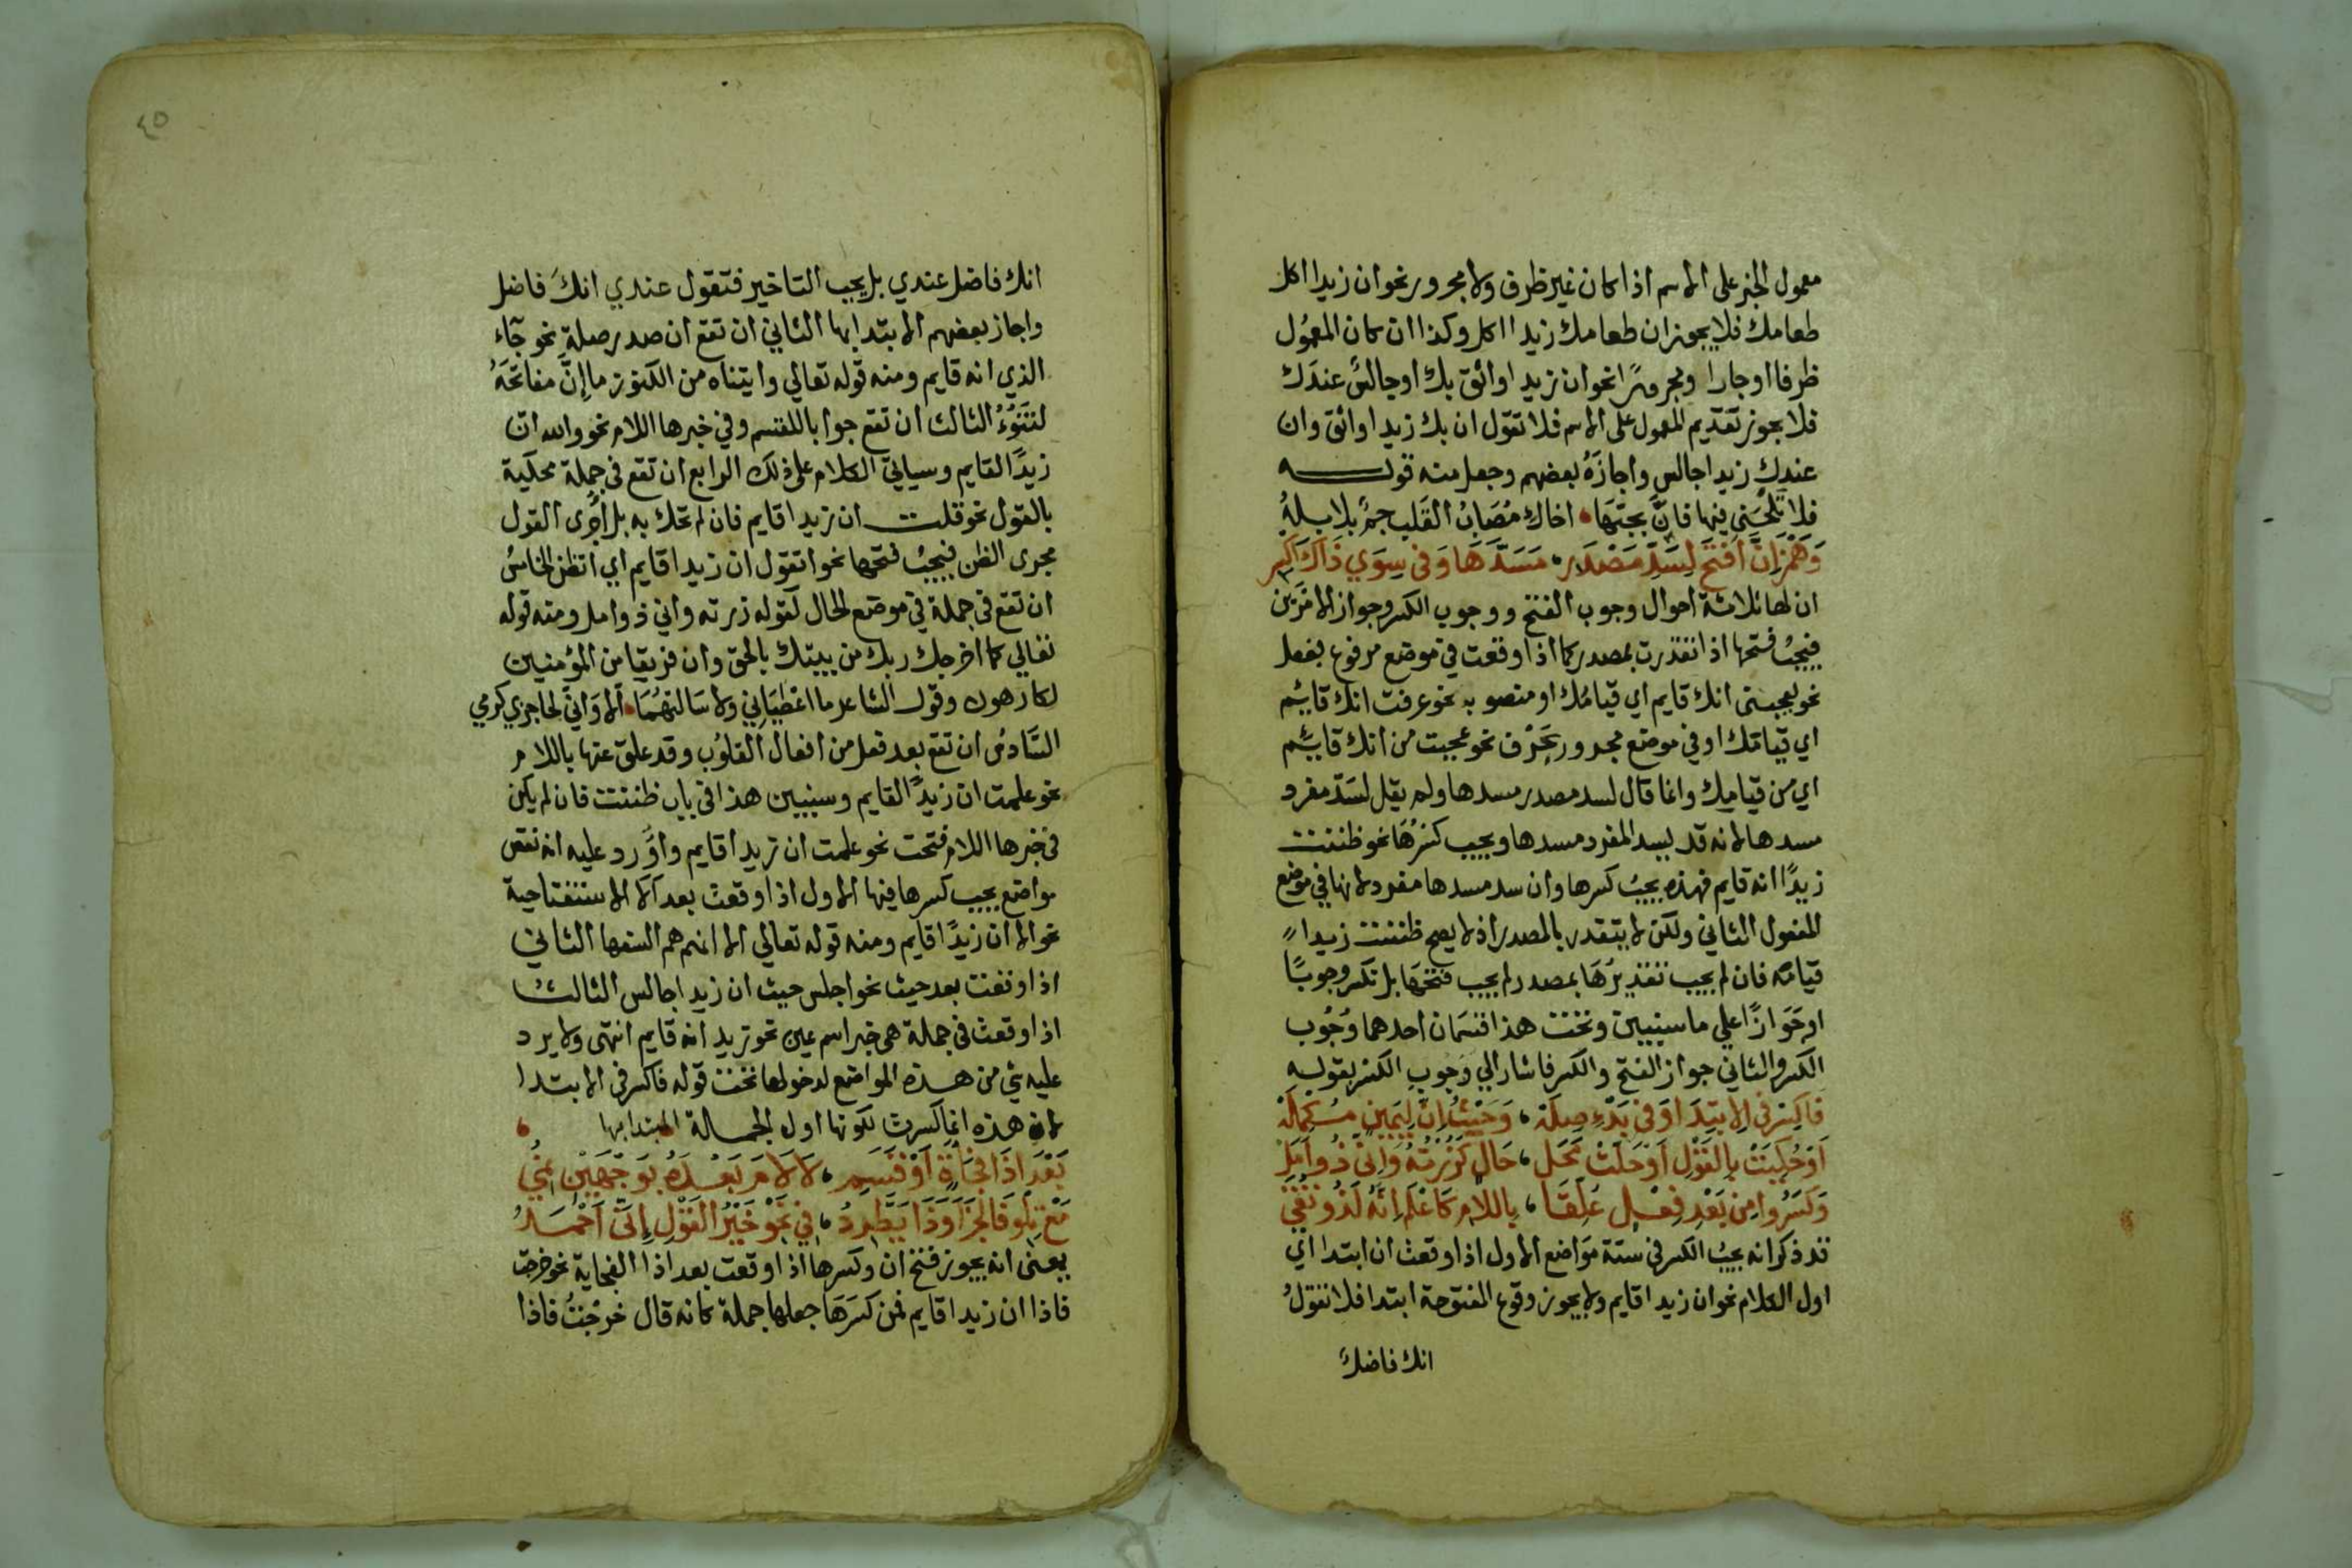 معمول الخبر على الاسم اذا كان غير ظرف ولا مجرور نحو ان زيدا اكل
طعامك فلا يجوز ان طعامك زيدا اكل وكذا ان كان المعمُول
ظرفا او جارا ومجرورًا نحو ان زيدا واثق بك او جالسٌ عندَك
فلا يجوز تقديم المعمول على الاسم فلا تقول ان بك زيدا واثق وان
عندك زيدا جالس واجازَهُ بعضهم وجعل منه قوله
فلا تَلْحَنِي فيها فانَّ بحبّهَا اخاك مُصَابُ القَلب جمٌّ بلابلهُ
وَهَمْزَ اِنَّ اَفْتَحْ لِسَدِّ مَصْدَرِ مَسَدَّهَا وَفي سِوَي ذَاكَ اكْسِر
ان لها ثلاثة احوال وجوب الفتح ووجوب الكسر وجواز الامرَين
فيجبُ فتحها اذا تقدرت بمصدر كما اذا وقعت في موضع مرفوع بفعل
نحو يعجبني انك قايم اي قيامُك او منصوبه نحو عرفت انك قايم
اي قيامَك او في موضع مجرور بحَرْف نحو عجبت من انك قايم
اي من قيامِك وانما قال لسد مصدر مسدها ولم يقل لسدّ مفرد
مسدها لانه قد يسد المفرد مسدها ويجب كسْرُهَا نحو ظننت
زيدًا انه قايم فهذه يجبُ كسرها وان سد مسدها مفرد لانها في موضع
المفعول الثاني ولكن لا يتقدر بالمصدر اذ لا يصح ظننت زيدا
قيامَه فان لم يجب تقديْرُهَا بمصدر لم يجب فتحهَا بل تكسر وجوبًا
او جَوَازًا علي ما سنبين وتحت هذا قسمَان احدهما وُجُوب
الكسر والثاني جواز الفتح والكسر فاشار الي وُجُوبِ الكسْر بقوله
فَاكْسِرْ في الاِبْتِدَا وَفي بَدْءِ صِلَهْ وَحَيْثُ اِنَّ لِيَمِينٍ مُكْمِلَهْ
اَوْ حُكِيَتْ بِالقَوْلِ اَوْ حَلَّتْ مَحَل حَالٍ كَزُرْتُهُ وَاِنّي ذُو اَمَلْ
وَكَسَرُوا مِنْ بَعْدِ فِعْلٍ عُلِّقَا بِاللامِ كَاعْلَمْ اِنَّهُ لَذُو تُقَي
قد ذكر انه يجبُ الكسر في ستة مَواضع الاول اذا وقعت ان ابتدا اي
اول الكلام نحو ان زيدا قايم ولا يجوز وقوع المفتوحة ابتدا فلا تقولُ
انك فاضلٌ
٤٥
انك فاضل عندي بل يجب التاخير فتقول عندي انكَ فاضل
واجاز بعضهم الابتدا بها الثاني ان تقع ان صدر صلة نحو جآء
الذي انه قايم ومنه قوله تعالي واتيناه من الكنوز ما إنَّ مفاتحَهُ
لتنُوْءُ الثالث ان تقع جوابا للقسم وفي خبرها اللام نحو والله ان
زيدًا لقايم وسياتي الكلام على ذلك الرابع ان تقع في جملة محكية
بالقول نحو قلت ان زيدا قايم فان لم تحك به بل اُجْرى القول
مجرى الظن فيجبُ فتحها نحو اتقول ان زيدا قايم اي اتظن الخامسُ
ان تقع في جملة في موضع الحال كقوله زرته واني ذو امل ومنه قوله
تعالي كما اخرجك ربك من بيتك بالحق وان فريقا من المؤمنين
لكارهون وقول الشاعر ما اعْطَيَانِي ولا سَالتهُمَا الا وَاني لحاجزي كرمي
السَّادسُ ان تقع بعد فعل من افعال القلوُب وقد علق عنها باللام
نحو علمت ان زيدًا لقايم وسنبين هذا في باب ظننت فان لم يكن
في خبرها اللام فتحت نحو علمت ان زيدا قايم واَوْرد عليه انه نقص
مواضع يجب كسرها فيها الاول اذا وقعت بعد الا الاستفتاحية
نحو الا ان زيدًا قايم ومنه قوله تعالي الا انهم هم السفها الثاني
اذا وقعت بعد حيث نحو اجلس حيث ان زيدا جالس الثالث
اذا وقعت في جملة هي خبر اسم عين نحو زيد انه قايم انتهى ولا يرد
عليه شي من هذه المواضع لدخولها تحت قوله فاكسر في الابتدا
لان هذه انما كسرت لكونها اول الجملة المبتدا بها
بَعْدَ اذَا فُجَاءَةٍ اَوْ قَسَمِ لَا لَامَ بَعْدَهُ بِوَجْهَيْنِ نُمِي
مَعْ تِلْوِ فَا الْجَزَا وَذَا يَطَّرِدُ فِي نَحْوِ خَيْرُ القَوْلِ اِنّي اَحْمَدُ
يعنى انه يجوز فتح ان وكسرها اذا وقعت بعد اذا الفجاية نحو خرجت
فاذا ان زيدا قايم فمن كسَرَهَا جعلها جملة كانه قال خرجْتُ فاذا